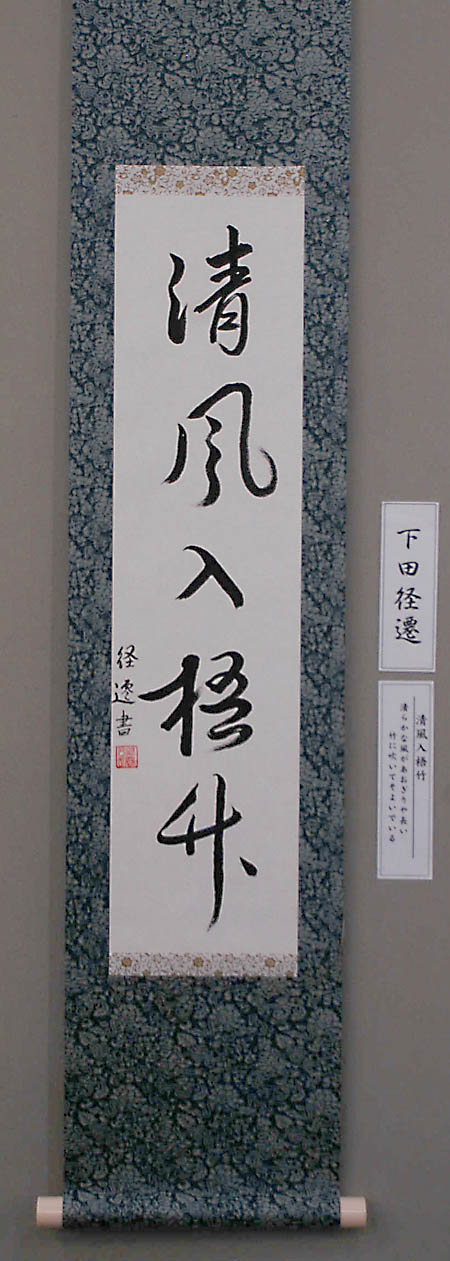 清風入梧竹
径遷書
下田径遷
清風入梧竹
清らかな風があおぎりや長い
竹に吹いてそよいでいる